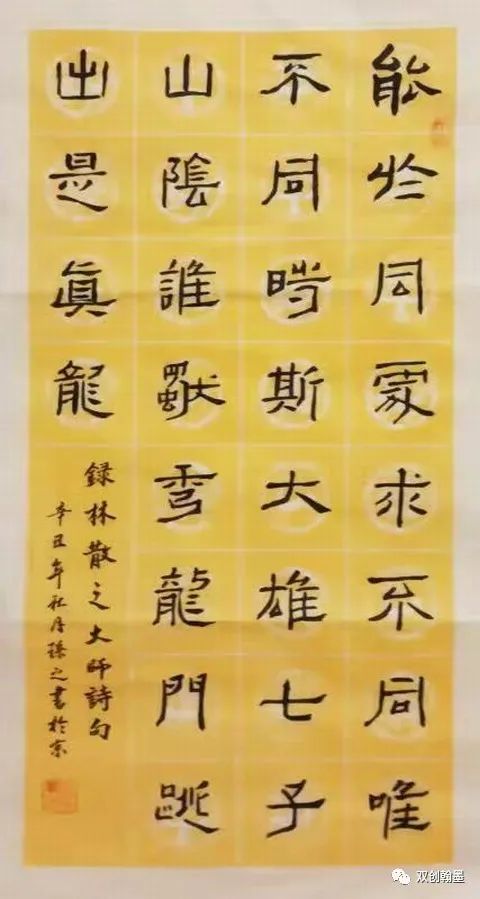 能於同處求不同唯
不同時斯大雄七子
山陰誰獨龍門跳
出是眞龍
録林散之大师詩句
辛丑年之書於京
双创翰墨